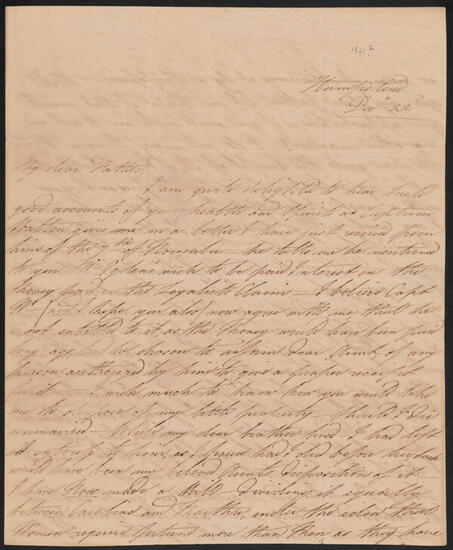 1821?
Decr 22d
My dear Father,
I am quite delighted to hear such
good accounts of your health and Spirits as Captain
Walton gives me in a letter I have just received from
him of the 7th of November – he tells me he mentioned
to you Mr wish to be paid Interest on the
Money paid on the Claim – I believe Capt
Wn (and I hope you also) now agree with me that he
not entitled to it as the Money would have been paid
long ago had he chosen to inform dear Aunt, of any
person authorized by him to give a proper receipt
for it – I wish much to know how you would like
me to dispose of my little property should I die
unmarried – Would my dear brother lived I had left
it entirely to him, as I knew
would have been my beloved Aunts disposition of it
I have Now made a Will dividing it equally
between Caroline and Martha, under the idea that
Women require fortune more than Men as they have